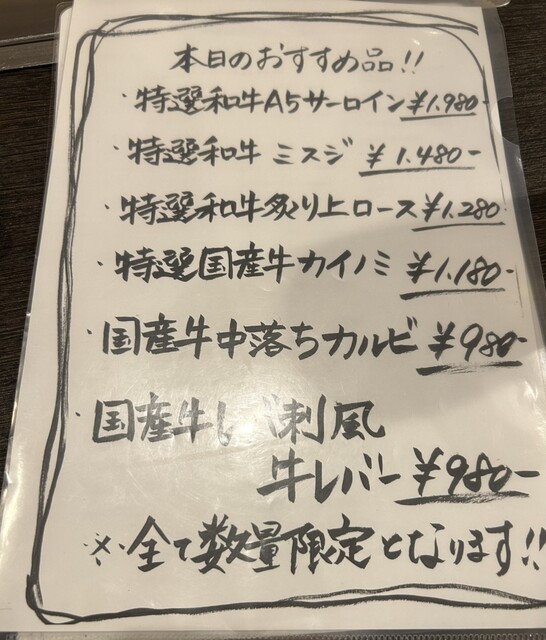 本日のおすすめ品!!
・特選和牛A5サーロイン ¥1.980-
・特選和牛 ミスジ ¥1.480-
・特選和牛炙り上ロース ¥1.280
・特選国産牛カイノミ ¥1.180-
・国産牛中落ちカルビ ¥980-
・国産牛レバ刺風
牛レバー ¥980-
※全て数量限定となります!!